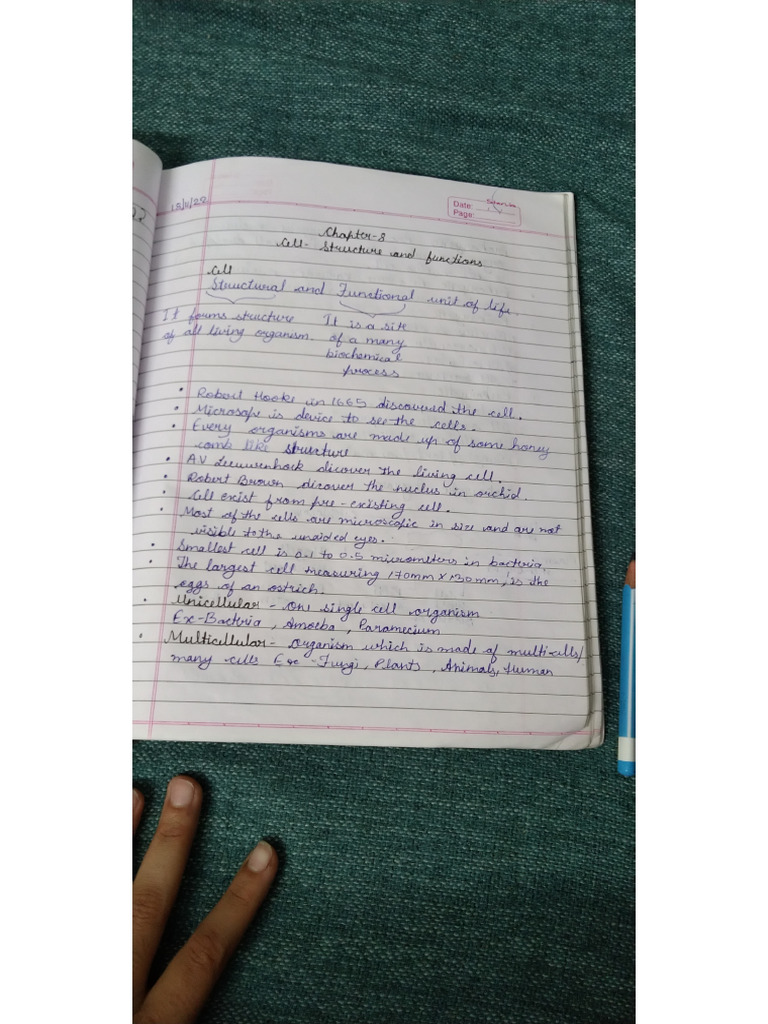 15/11/22
Date:
Page:
Chapter-8
Cell- Structure and functions
Cell
Structural and Functional unit of life.
It forms structure It is a site
of all living organism. of a many
biochemical
process
• Robert Hooke in 1665 discovered the cell.
• Microsope is device to see the cells.
• Every organisms are made up of some honey
comb like structure
• A.V Leeuwenhock dicover the living cell.
• Robert Brown dicover the nuclus in orchid.
• Cell exist from pre-existing cell.
• Most of the cells are microscopic in size and are not
visible to the unaided eyes.
• Smallest cell is 0.1 to 0.5 micrometers in bacteria.
• The largest cell measuring 170mm x 130mm, is the
eggs of an ostrich.
• Unicellular - One single cell organism
Ex-Bacteria, Amoeba, Paramecium
• Multicellular - Organism which is made of multi-cells/
many cells Exe -Fungi, Plants, Animals, Human